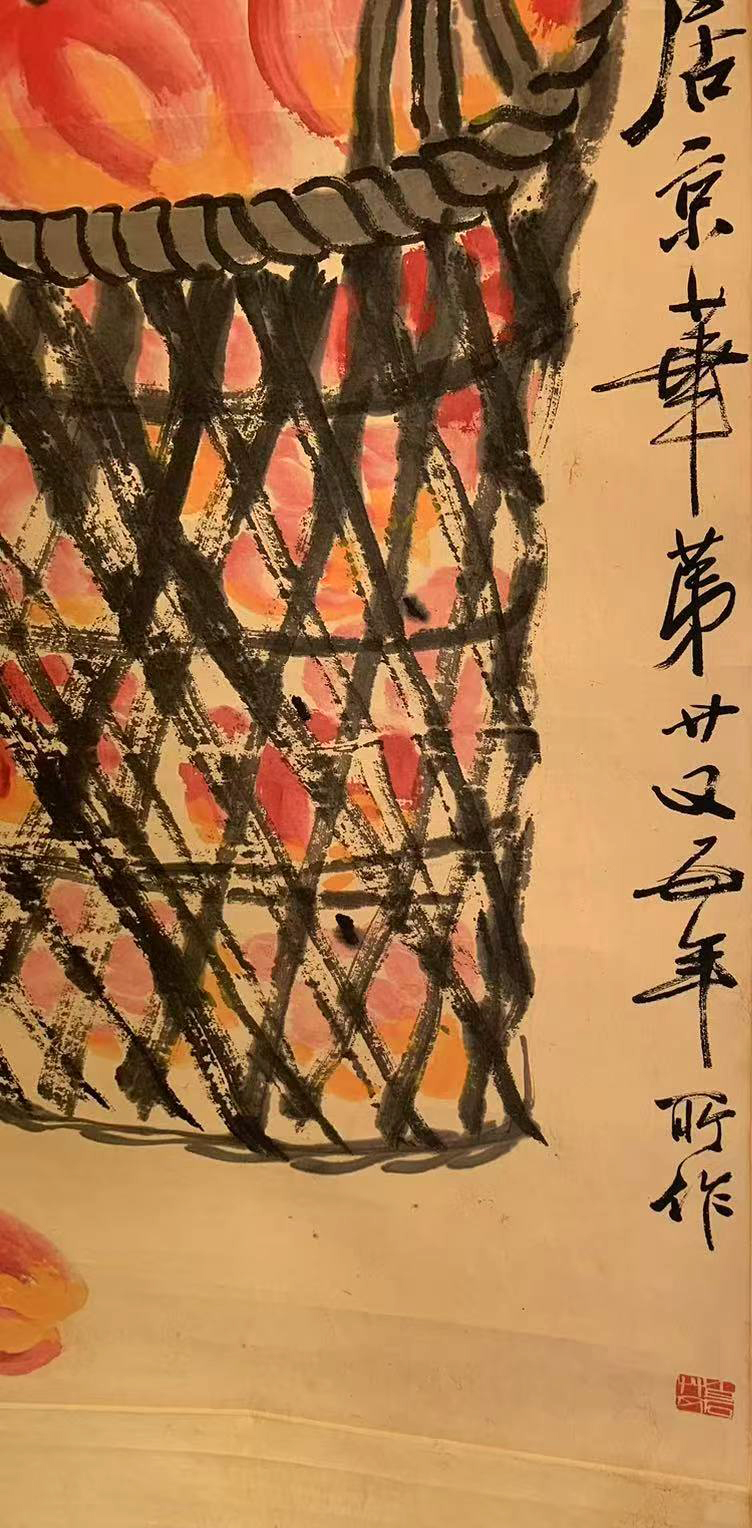 居京華第廿又五年所作